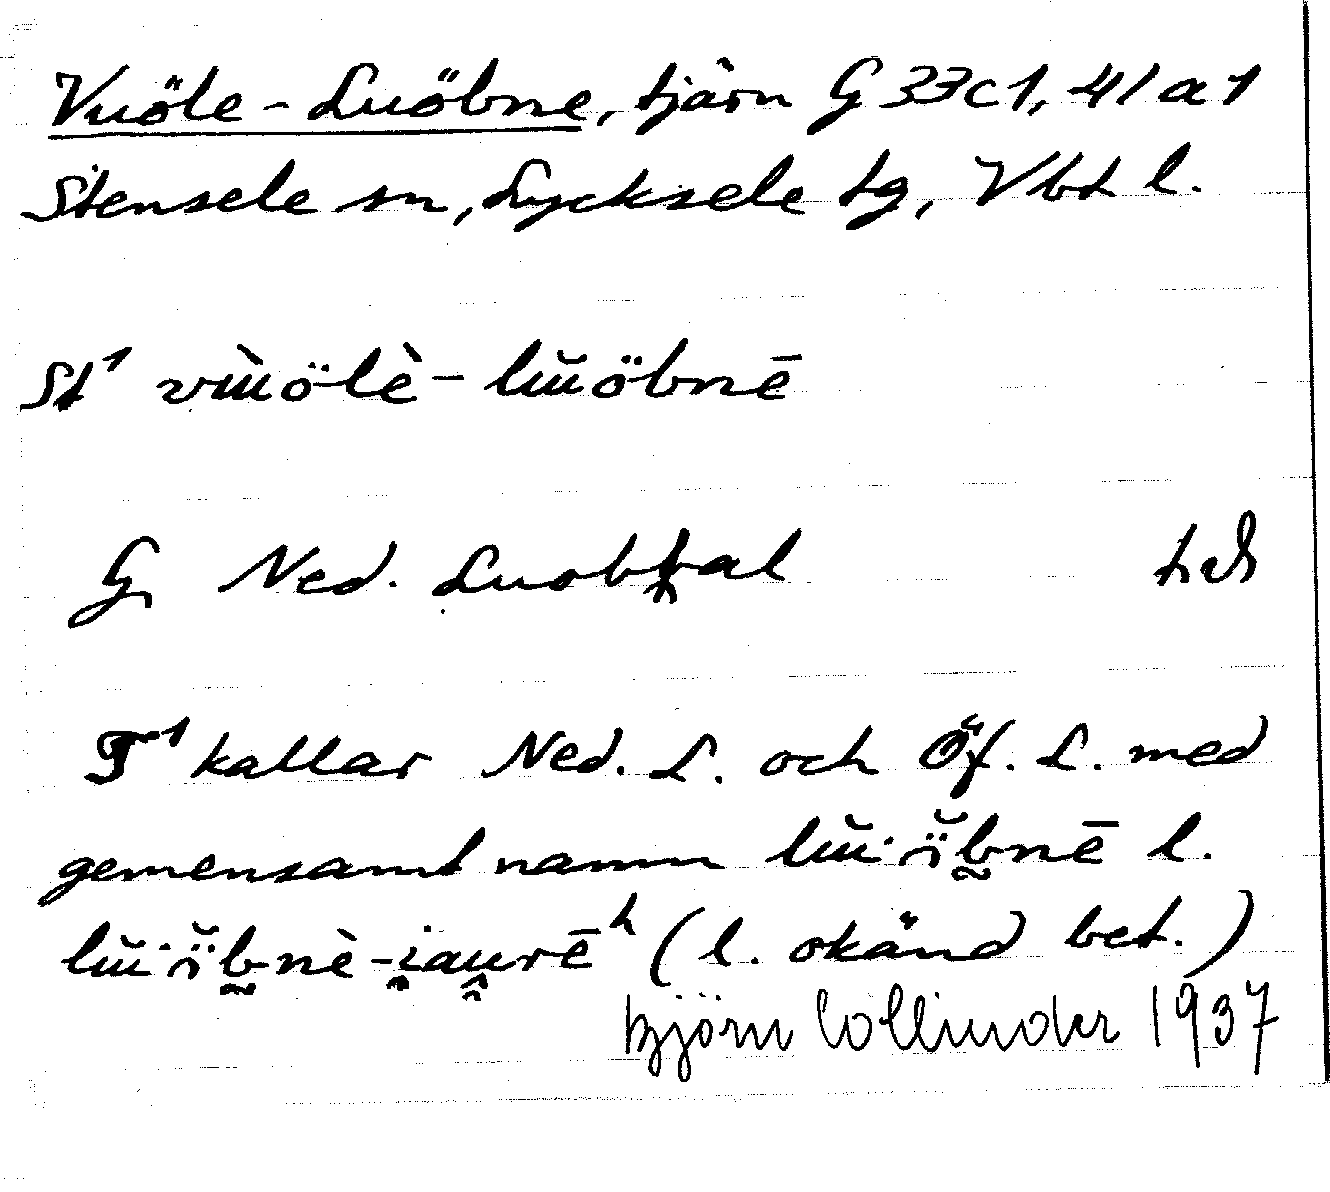 Vuöle-Luöbne, tjärn G 33c1, 41a1
Stensele sn, Lycksele tg, Vbt l.
St¹ vùölè-lŭöbnē
G Ned. Luobbal
T¹ kallar Ned. L. och Öf. L. med
gemensamt namn lŭ·öb̰nē l.
lŭ·öb̰nè-i̯au̯rēʰ (l. okänd bet.)
Björn Collinder 1937